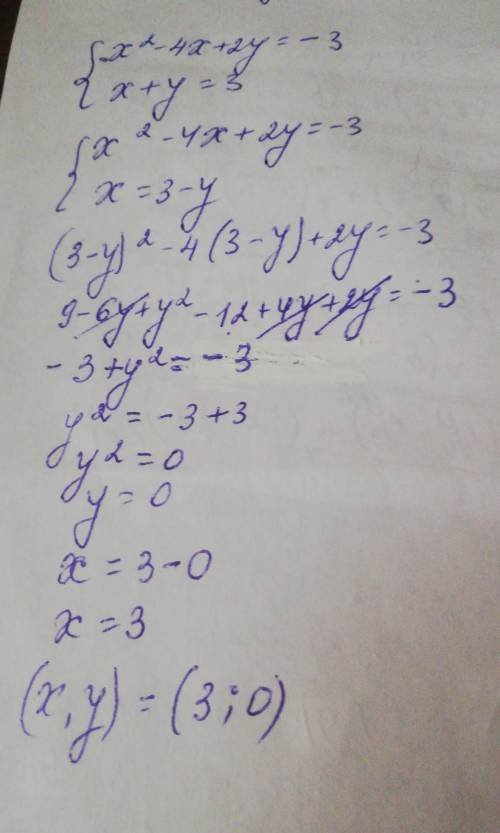 {x² - 4x + 2y = -3
x + y = 3
{x² - 4x + 2y = -3
x = 3 - y
(3-y)² - 4(3-y) + 2y = -3
9 - 6y + y² - 12 + 4y + 2y = -3
-3 + y² = -3
y² = -3 + 3
y² = 0
y = 0
x = 3 - 0
x = 3
(x, y) = (3; 0)